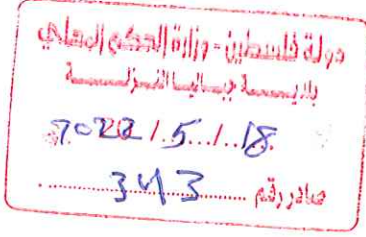 دولة فلسطين - وزارة الحكم المحلي
بلدية جباليا النزلة
2022/5/18
صادر رقم 343